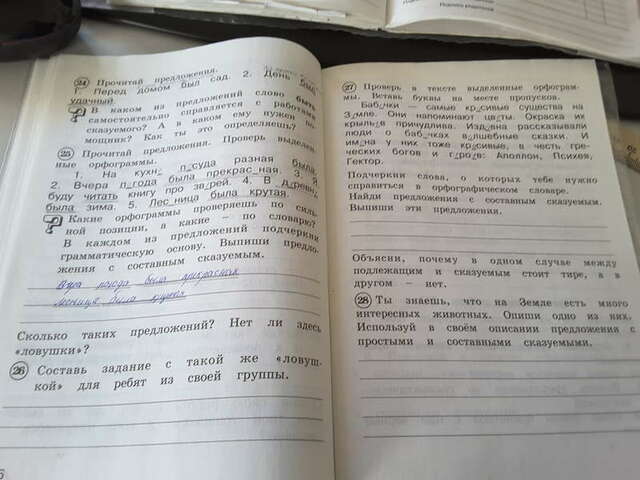 24 Прочитай предложения.
1. Перед домом был сад. 2. День был
удачный.
В каком из предложений слово быть
самостоятельно справляется с работами
сказуемого? А в каком ему нужен по-
мощник? Как ты это определяешь?
25 Прочитай предложения. Проверь выделен-
ные орфограммы.
1. На кухн_ п_суда разная была.
2. Вчера п_года была прекрас_ная. 3. Я
буду читать книгу про зв_рей. 4. В д_ревне
была зима. 5. Лес_ница была крутая.
Какие орфограммы проверяешь по силь-
ной позиции, а какие – по словарю?
В каждом из предложений подчеркни
грамматическую основу. Выпиши предло-
жения с составным сказуемым.
Вчера погода была прекрасная
лесница была крутая
Сколько таких предложений? Нет ли здесь
«ловушки»?
26 Составь задание с такой же «ловуш-
кой» для ребят из своей группы.
27 Проверь в тексте выделенные орфограм-
мы. Вставь буквы на месте пропусков.
Баб_чки — самые кр_сивые существа на
З_мле. Они напоминают цв_ты. Окраска их
крыль_в причудлива. Изд_вна рассказывали
люди о баб_чках в_лшебные сказки. И
им_на у них тоже кр_сивые, в честь гре-
ческих богов и г_ро_в: Аполлон, Психея,
Гектор.
Подчеркни слова, о которых тебе нужно
справиться в орфографическом словаре.
Найди предложения с составным сказуемым.
Выпиши эти предложения.
Объясни, почему в одном случае между
подлежащим и сказуемым стоит тире, а в
другом — нет.
28 Ты знаешь, что на Земле есть много
интересных животных. Опиши одно из них.
Используй в своём описании предложения с
простыми и составными сказуемыми.